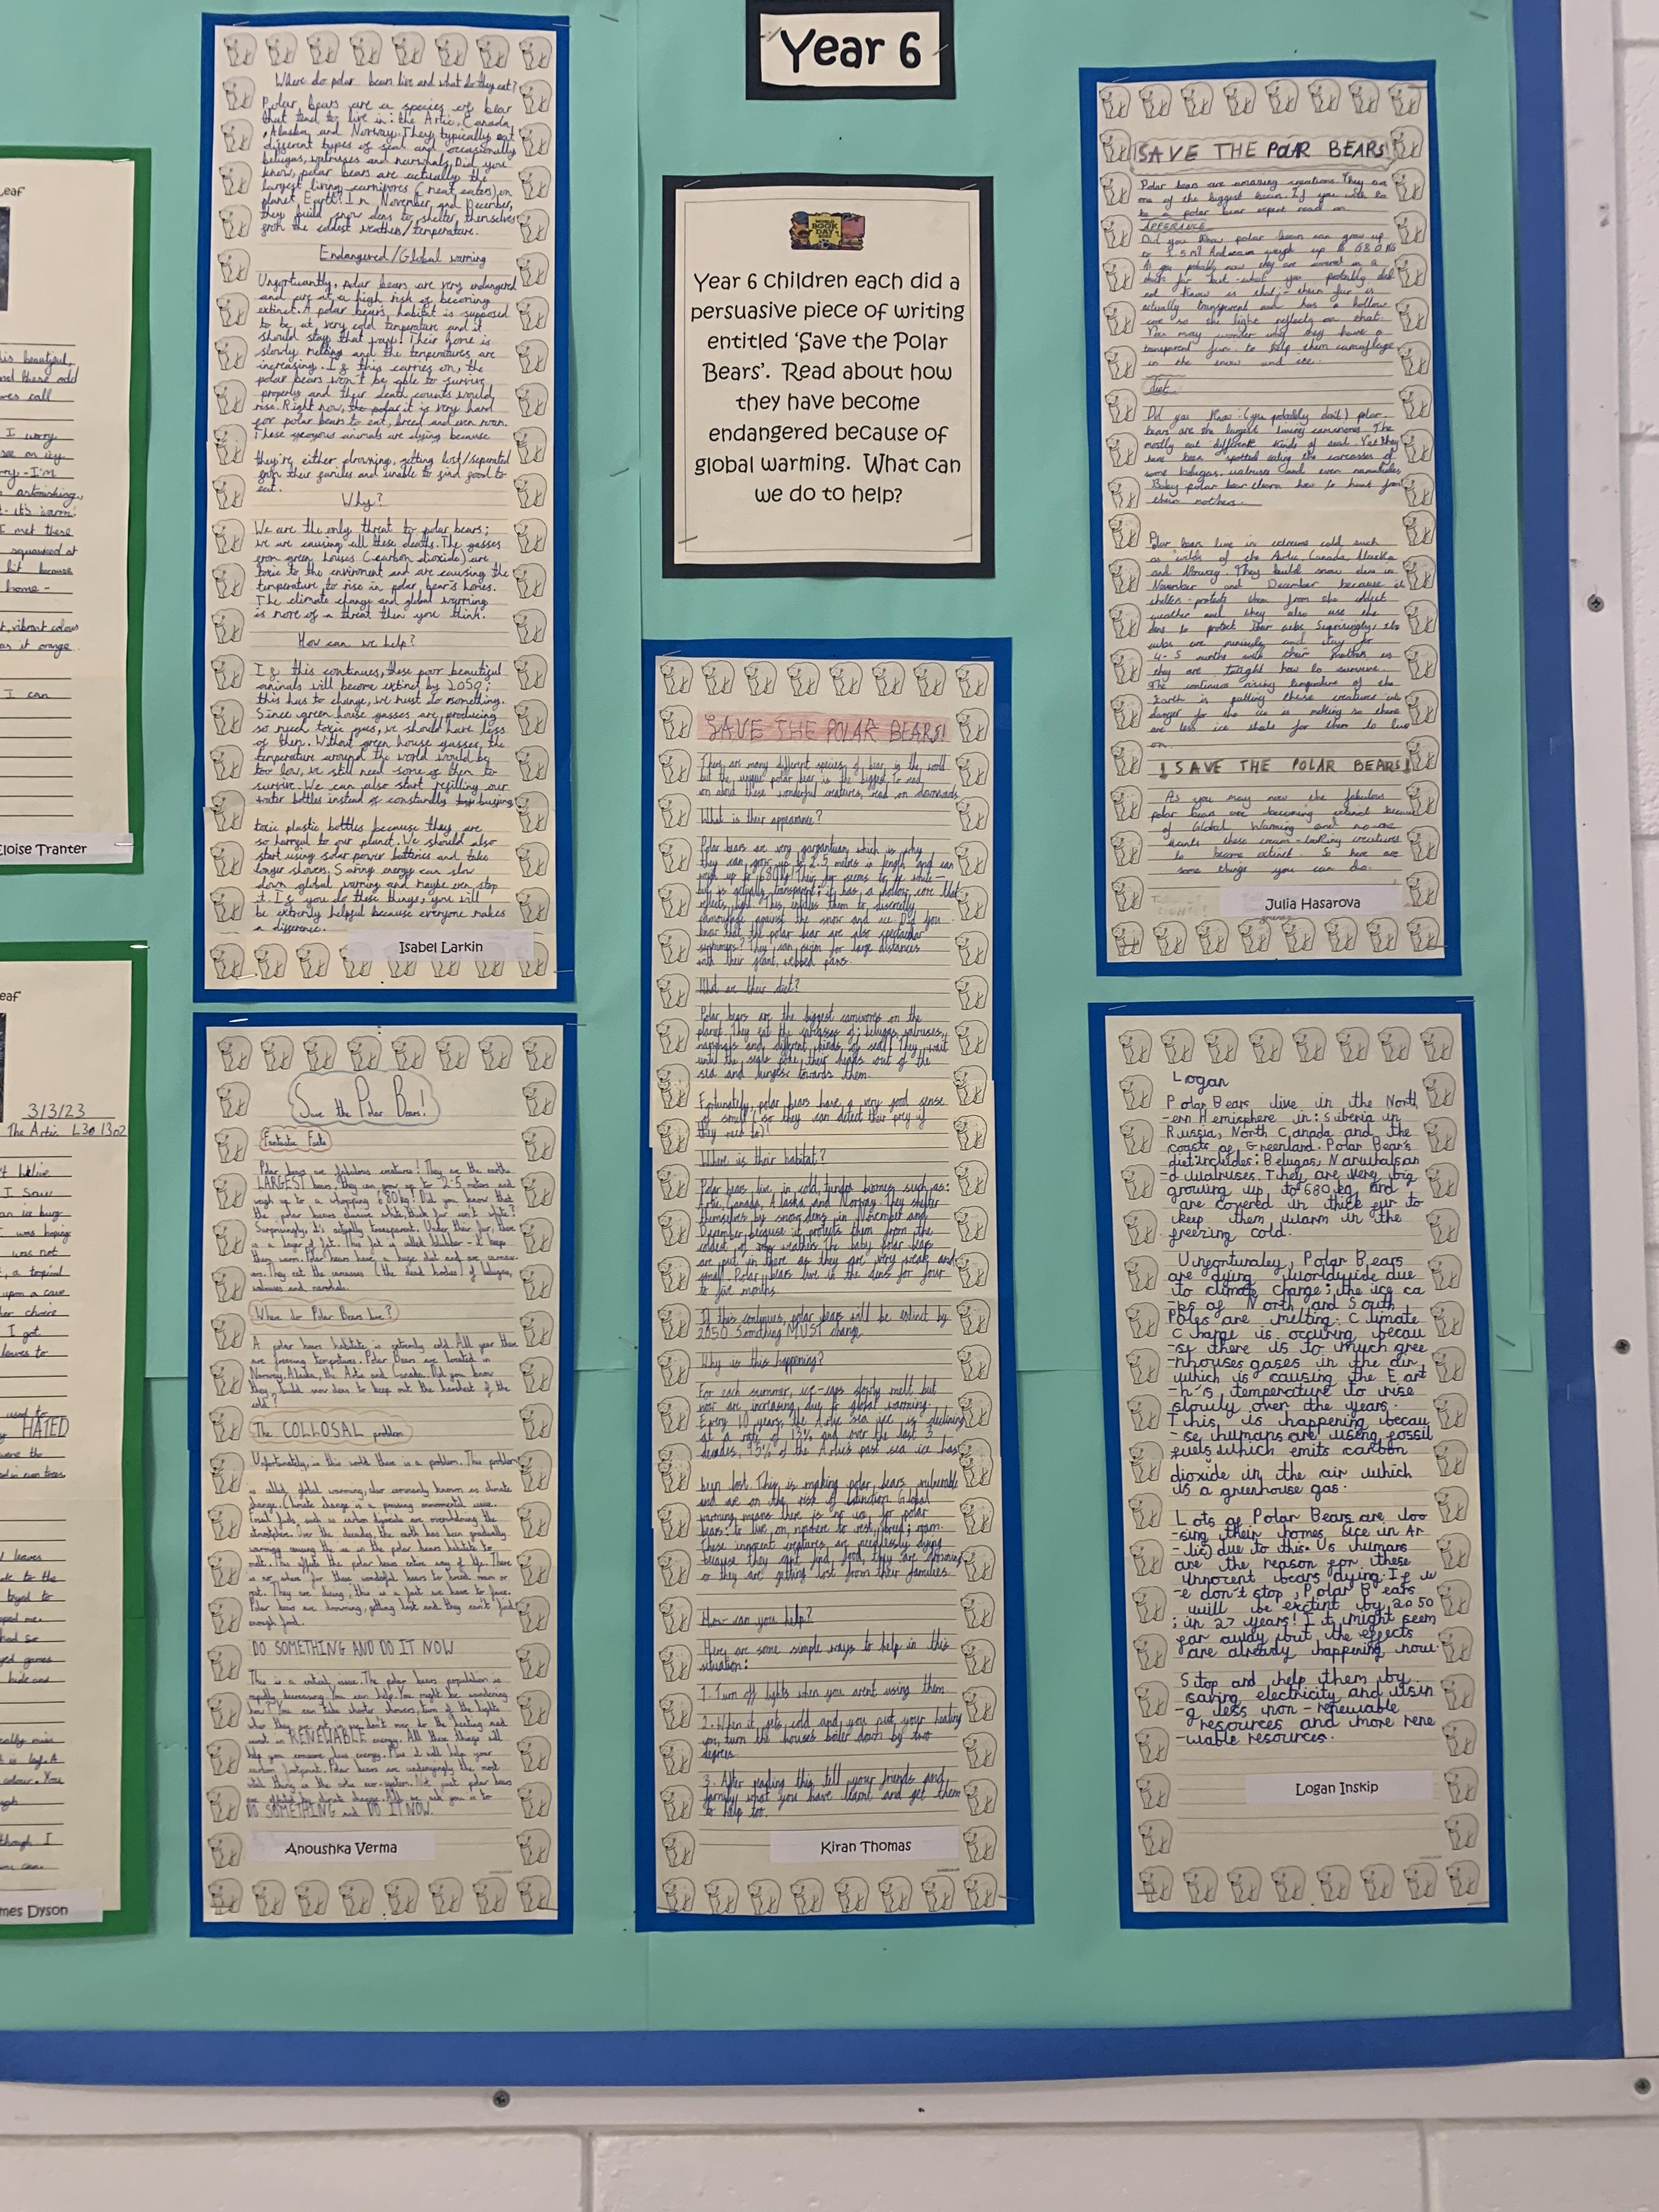 Year 6
WORLD
BOOK
DAY
Year 6 children each did a
persuasive piece of writing
entitled ‘Save the Polar
Bears’. Read about how
they have become
endangered because of
global warming. What can
we do to help?
Where do polar bears live and what do they eat?
Polar bears are a species of bear
that tend to live in: the Artic, Canada
, Alaska, and Norway. They typically eat
different types of seal and occasionally
belugas, walruses and narwhals. Did you
know, polar bears are actually the
largest living carnivores (meat eaters) on
planet Earth? In November and December,
they build snow dens to shelter themselves
from the coldest weather/temperature.
Endangered/Global warming
Unfortuantly, polar bears are very endangered
and are at a high risk of becoming
extinct. A polar bear's habitat is supposed
to be at very cold temperature and it
should stay that way! Their home is
slowly melting and the temperatures are
increasing. If this carries on, the
polar bears won't be able to survive
properly and their death counts would
rise. Right now, the polar it is very hard
for polar bears to eat, breed and even roam.
These gorgeous animals are dying because
they're, either drowning, getting lost/separated
from their families and unable to find food to
eat.
Why?
We are the only threat to polar bears;
we are causing all these deaths. The gasses
from green houses (carbon dioxide) are
toxic to the enviroment and are causing the
temperature to rise in polar bear's homes.
The climate change and global warming
is more of a threat then you think.
How can we help?
If this continues, these poor beautiful
animals will become extinct by 2050;
this has to change, we must do something.
Since green house gasses are producing
so much toxic gas, we should have less
of them. Without green house gasses, the
temperature around the world would be
too low, we still need some of them to
survive. We can also start refilling our
water bottles instead of constandly buying
toxic plastic bottles because they are
so harmful to our planet. We should also
start using solar power batteries and take
longer showers. Saving energy can slow
down global warming and maybe even stop
it. If you do these things, you will
be extremly helpful because everyone makes
a difference.
Isabel Larkin
Save the Polar Bears!
Fantastic Facts
Polar bears are fabulous creatures! They are the earths
LARGEST bears, they can grow up to 2.5 meters and
weigh up to a whopping 680kg! Did you know that
the polar bears elusive white, thick fur isn't white?
Surprisingly, it's actually transparent. Under their fur, there
is a layer of fat. This fat is called blubber - it keeps
them warm. Polar bears have a huge diet and are carnivo-
res. They eat the carcasses (the dead bodies) of belugas,
walruses and narwhals.
Where do Polar Bears live?
A polar bears habitate is extremly cold. All year there
are freezing tempratures. Polar Bears are located in
Norway, Alaska, the Artic and Canada. Did you know
they build snow dens to keep out the harshest of the
cold?
The COLLOSAL problem
Unfortunately, in this world there is a problem. This problem
is called global warming, also commonly known as climate
change. Climate change is a pressing enviromental issue.
Fossil fuels such as carbon dyoxide are overwhelming the
atmosphere. Over the decades, the earth has been gradually
warming causing the ice in the polar bears habitate to
melt. This affects the polar bears entire way of life. There
is no where for these wonderful bears to breed, roam or
rest. They are dieing; this is a fact we have to face.
Polar bears are drowning, getting lost and they can't find
enough food.
DO SOMETHING AND DO IT NOW
This is a critical issue. The polar bears population is
rapidly decreasing. You can help. You might be wondering
how? You can take shorter showers, turn of the lights
when they are not in use, don't over do the heating and
invest in RENEWABLE energy. All these things will
help you consume less energy. Plus it will help your
carbon footprint. Polar bears are undenyingly the most
vital thing in the artic eco-system. Not just polar bears
are affected by climate change. All we ask you is to
DO SOMETHING and DO IT NOW.
Anoushka Verma
SAVE THE POLAR BEARS!
There are many different species of bear in the world
but the unique polar bear is the biggest. To read
on about these wonderful creatures, read on downwards.
What is their appearance?
Polar bears are very gargantuan which is why
they can grow up to 2.5 metres in length and can
weigh up to 680kg! Their fur seems to be white -
but is actually transparent; it has a hollow core that
reflects light. This enables them to discreetly
camouflage against the snow and ice. Did you
know that the polar bear are also spectacular
swimmers? They can swim for large distances
with their giant, webbed paws.
What are their diet?
Polar bears are the biggest carnivores on the
planet. They eat the carcasses of; belugas, walruses,
narwhals and different kinds of seal! They wait
until the seals poke their heads out of the
sea and lunges towards them.
Fortunately, polar bears have a very good sense
of smell (so they can detect their prey if
they need to)!
Where is their habitat?
Polar bears live in cold, tundra biomes such as:
Artic, Canada, Alaska and Norway. They shelter
themselves by snow dens in November and
December because it protects them from the
coldest of weathers. The baby polar bears
are put in there as they are very weak and
small. Polar bears live in the dens for four
to five months.
If this continues, polar bears will be extinct by
2050. Something MUST change
Why is this happening?
For each summer, ice-caps slowly melt but
now are increasing due to global warming.
Every 10 years, the Artic sea ice is declining
at a rate of 13% and over the last 3
decades, 95% of the Artic's past sea ice has
been lost. This is making polar bears vulnerable
and are on the risk of extinction. Global
warming means there is no ice for polar
bears: to live on, nowhere to rest, breed; roam.
These innocent creatures are needlessly dying
because they can't find food, they are drowning
or they are getting lost from their families.
How can you help?
Here are some simple ways to help in this
situation:
1. Turn off lights when you arent using them
2. When it gets cold and you put your heating
on, turn the houses boiler down by two
degrees.
3. After reading this, tell your friends and
family what you have learnt and get them
to help too.
Kiran Thomas
SAVE THE POLAR BEARS!
Polar bears are amazing creations. They are
one of the biggest bears. If you wish to
be a polar bear expert read on.
APPERANCE
Did you know polar bears can grow up
to 2.5m? And weigh up to 680kg
As you probably now they are covered in a
thick fur but what you probably did
not know is that; - their fur is
actually transparent and has a hollow
core so the light reflects on that.
You may wonder why they have a
transparent fur. to help them camouflage
in the snow and ice.
diet
Did you know (you probably don't) polar
bears are the largest living carnivores. The
mostly eat different kinds of seal. Yet they
have been spotted eating the carcasses of
some belugas, walruses and even
Baby polar bear learn how to hunt from
their mothers.
Polar bears live in extreme cold such
as wilds of the Artic, Canada, Alaska
and Norway. They build snow dens in
November and December because it
shelters - protects them from the coldest
weather and they also use the
dens to protect their cubs. Suprisingly, the
cubs are and stay for
4-5 months with their mothers as
they are taught how to survive.
The continues rising temperature of the
Earth is putting these creatures into
danger for the ice is melting so there
are less ice for them to live
on.
! SAVE THE POLAR BEARS!
As you may now the fabulous
polar bears are becoming extinct because
of Global Warming and no-one
wants these cream-looking creatures
to become extinct. So here are
some things you can do.
Julia Hasarova
Logan
Polar Bears live in the North
-ern Hemisphere in: Siberia in
Russia, North Canada and the
coasts of Greenland. Polar Bear's
diet includes: Belugas, Narwhals an
-d walruses. They are very big
growing up to 680 kg and
are covered in thick fur to
keep them warm in the
freezing cold.
Unfortunaley, Polar Bears
are dying worldwide due
to climate change; the ice ca
-ps of North and South
Poles are melting. Climate
Change is occuring becau
-se there is to much gree
-nhouses gases in the air
which is causing the Eart
-h's temperature to rise
slowly over the years.
This is happening becau
-se humans are using fossil
fuels which emits carbon
dioxide in the air which
is a greenhouse gas.
Lots of Polar Bears are loo
-sing their homes (ice in Ar
-tic) due to this. Us humans
are the reason for these
innocent bears dying. If w
-e don't stop, Polar Bears
will be exctint by 2050
; in 27 years! It might seem
far away but the effects
are already happening now.
Stop and help them by
saving electricity and usin
-g less non-renewable
resources and more rene
-wable resources.
Logan Inskip
Eloise Tranter
3/3/23
The Artic
HATED
mes Dyson